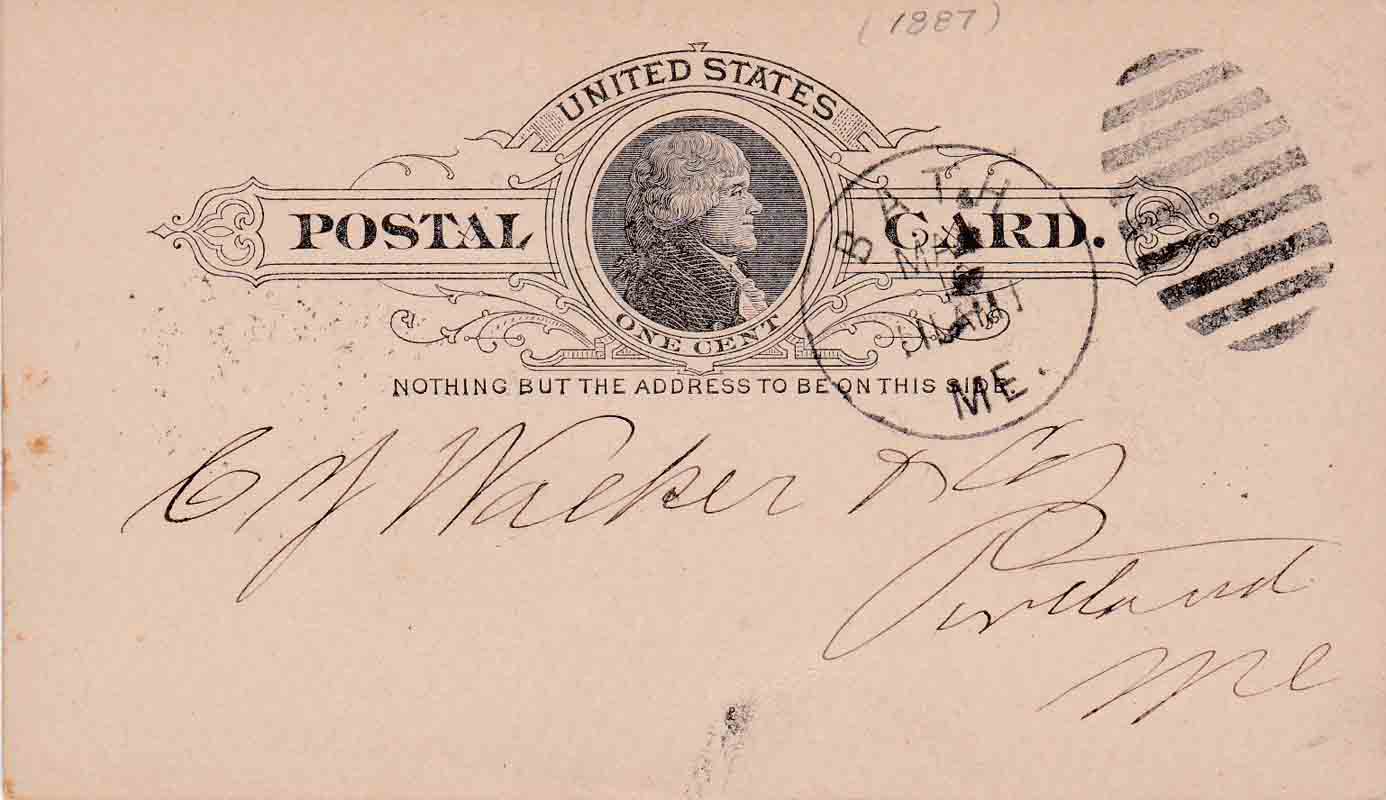 (1887)
UNITED STATES
POSTAL CARD.
ONE CENT
NOTHING BUT THE ADDRESS TO BE ON THIS SIDE
BATH
MAY
11 AM
ME.
C J Walker & Co
Portland
Me